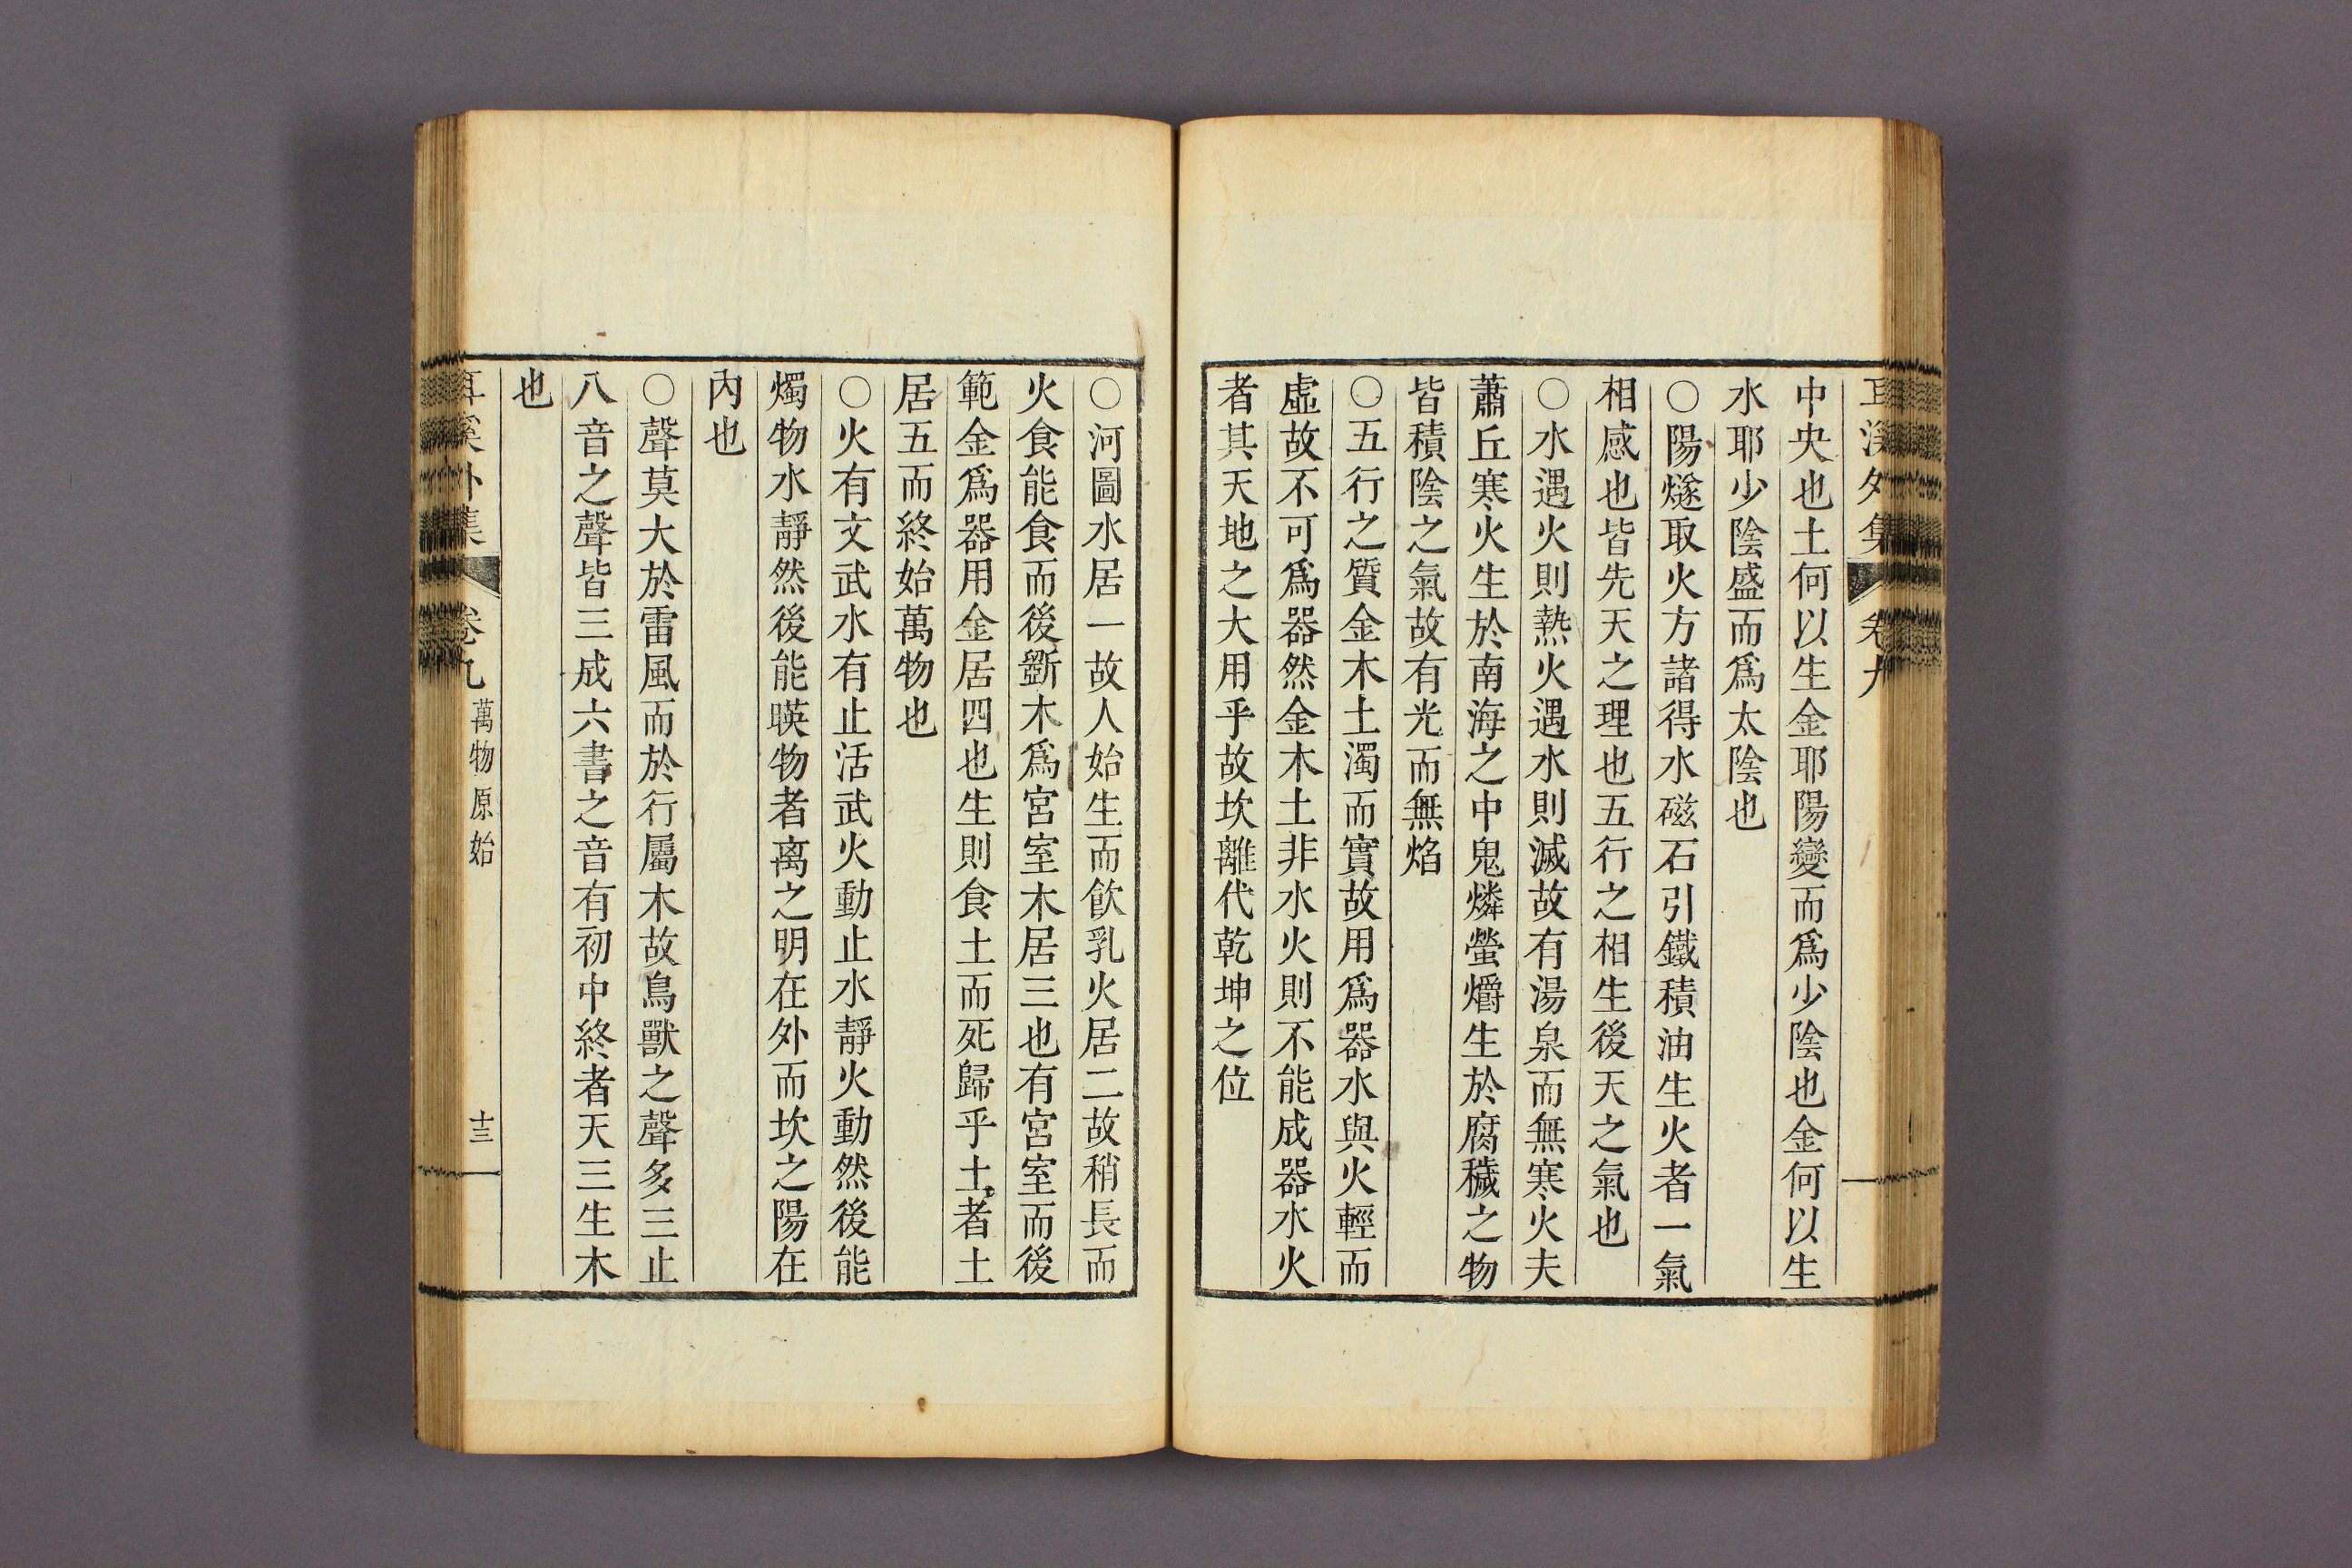 耳溪外集 卷九
中央也土何以生金耶陽變而爲少陰也金何以生
水耶少陰盛而爲太陰也
○陽燧取火方諸得水磁石引鐵積油生火者一氣
相感也皆先天之理也五行之相生後天之氣也
○水遇火則熱火遇水則滅故有湯泉而無寒火夫
蕭丘寒火生於南海之中鬼燐螢爝生於腐穢之物
皆積陰之氣故有光而無焰
○五行之質金木土濁而實故用爲器水與火輕而
虛故不可爲器然金木土非水火則不能成器水火
者其天地之大用乎故坎離代乾坤之位
○河圖水居一故人始生而飮乳火居二故稍長而
火食能食而後斲木爲宮室木居三也有宮室而後
範金爲器用金居四也生則食土而死歸乎土者土
居五而終始萬物也
○火有文武水有止活武火動止水靜火動然後能
燭物水靜然後能暎物者离之明在外而坎之陽在
內也
○聲莫大於雷風而於行屬木故鳥獸之聲多三止
八音之聲皆三成六書之音有初中終者天三生木
也
耳溪外集 卷九 萬物原始 十三